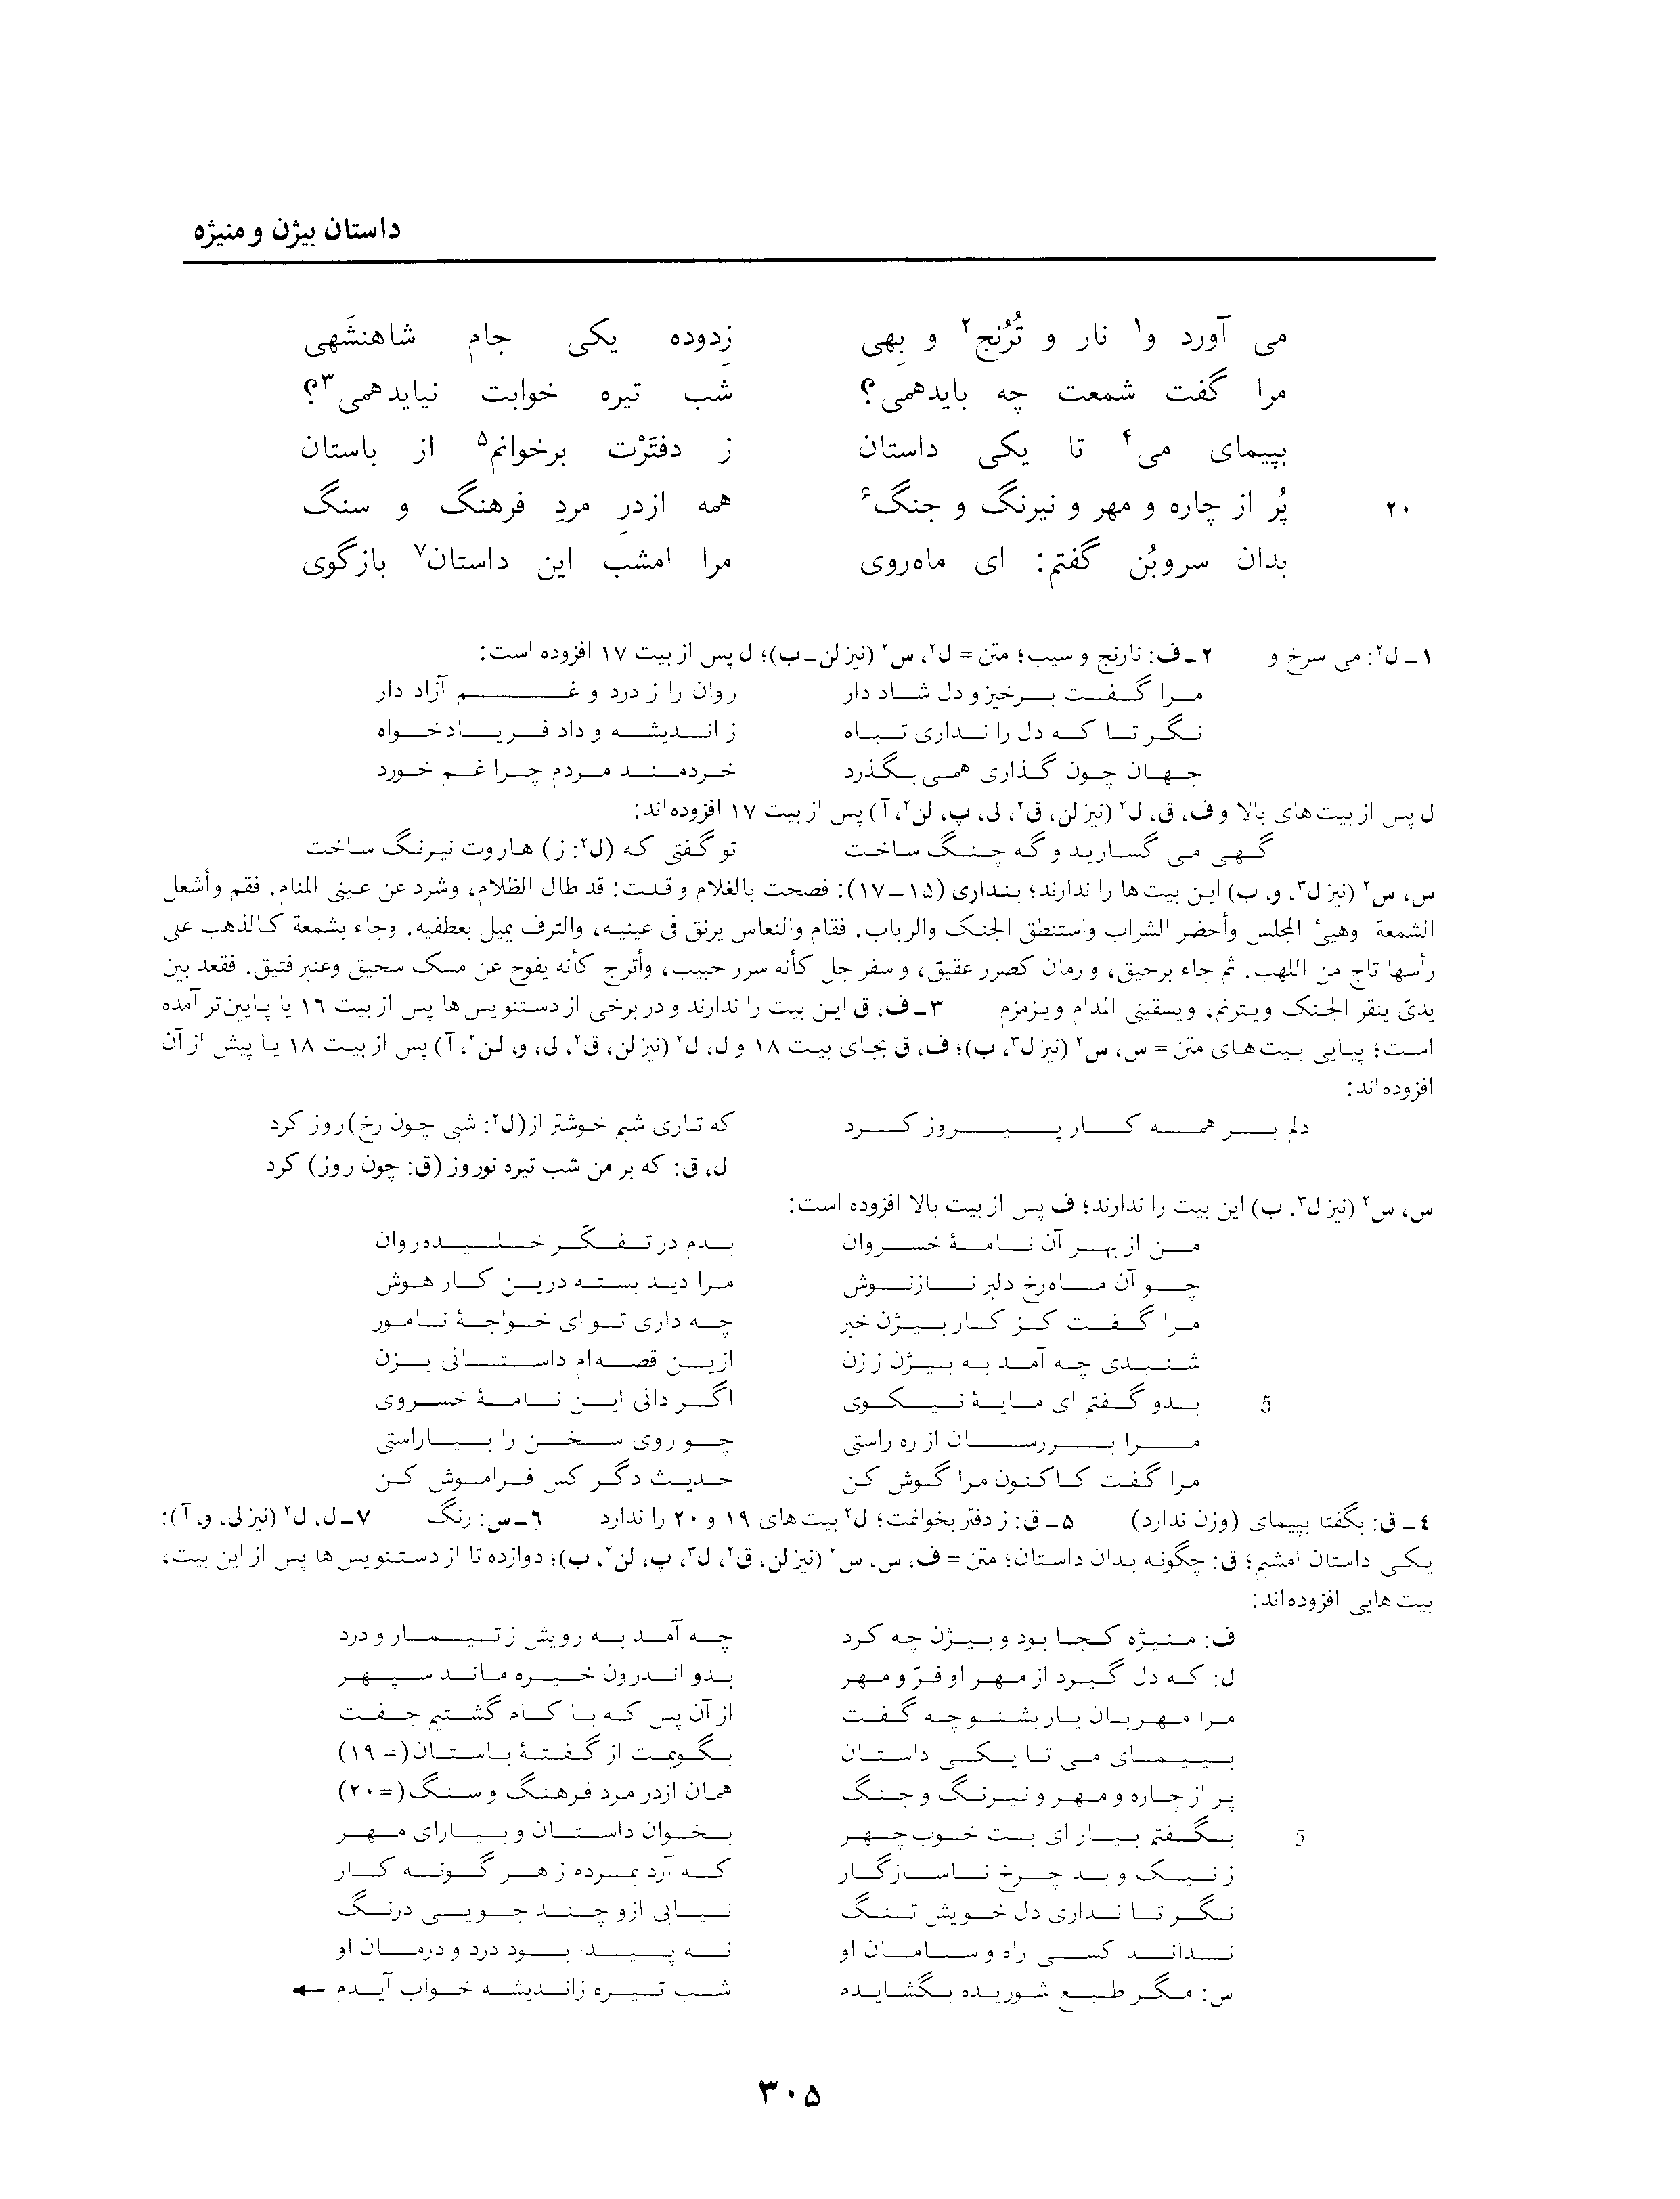 داستان بیژن و منیژه
می آورد و۱ نار و تُرُنج۲ و بِهی زِدوده یکی جام شاهنشَهی
مرا گفت شمعت چه بایدهمی؟ شب تیره خوابت نیایدهمی۳؟
بپیمای می۴ تا یکی داستان ز دفتَرْت برخوانم۵ از باستان
۲۰ پُر از چاره و مهر و نیرنگ و جنگ۶ همه ازدرِ مردِ فرهنگ و سنگ
بدان سروبُن گفتم: ای ماه‌روی مرا امشب این داستان۷ بازگوی
۱ـ ل۲: می سرخ و ۲ـ ف: نارنج و سیب؛ متن = ل۲، س۲ (نیز لن ـ ب)؛ ل پس از بیت ۱۷ افزوده است:
مرا گفت برخیز و دل شاد دار روان را ز درد و غم آزاد دار
نگر تا که دل را نداری تباه ز اندیشه و داد فریادخواه
جهان چون گذاری همی بگذرد خردمند مردم چرا غم خورد
ل پس از بیت‌های بالا و ف، ق، ل۲ (نیز لن، ق۲، لی، پ، لن۲، آ) پس از بیت ۱۷ افزوده‌اند:
گهی می گسارید و گه چنگ ساخت تو گفتی که (ل۲: ز) هاروت نیرنگ ساخت
س، س۲ (نیز ل۳، و، ب) این بیت‌ها را ندارند؛ بنداری (۱۵ـ۱۷): فصحت بالغلام و قلت: قد طال الظلام، وشرد عن عینی المنام. فقم وأشعل
الشمعة وهیئ المجلس وأحضر الشراب واستنطق الجنک والرباب. فقام والنعاس یرنق فی عینیه، والترف یمیل بعطفیه. وجاء بشمعة کالذهب علی
رأسها تاج من اللهب. ثم جاء برحیق، و رمان کصرر عقیق، و سفر جل کأنه سرر حبیب، وأترج کأنه یفوح عن مسک سحیق وعنبر فتیق. فقعد بین
یدیّ ینقر الجنک ویترنم، ویسقینی المدام ویزمزم ۳ـ ف، ق این بیت را ندارند و در برخی از دستنویس‌ها پس از بیت ۱۶ یا پایین‌تر آمده
است؛ پیاپی بیت‌های متن = س، س۲ (نیز ل۳، ب)؛ ف، ق بجای بیت ۱۸ و ل، ل۲ (نیز لن، ق۲، لی، و، لن۲، آ) پس از بیت ۱۸ یا پیش از آن
افزوده‌اند:
دلم بر همه کار پیروز کرد که تاری شبم خوشتر از(ل۲: شبی چون رخ)روز کرد
ل، ق: که بر من شب تیره نوروز (ق: چون روز) کرد
س، س۲ (نیز ل۳، ب) این بیت را ندارند؛ ف پس از بیت بالا افزوده است:
من از بهر آن نامهٔ خسروان بدم در تفکّر خلیده‌روان
چو آن ماه‌رخ دلبر نازنوش مرا دید بسته درین کار هوش
مرا گفت کز کار بیژن خبر چه داری تو ای خواجهٔ نامور
شنیدی چه آمد به بیژن ز زن ازین قصه‌ام داستانی بزن
5 بدو گفتم ای مایهٔ نیکوی اگر دانی این نامهٔ خسروی
مرا بررسان از ره راستی چو روی سخن را بیاراستی
مرا گفت کاکنون مرا گوش کن حدیث دگر کس فراموش کن
۴ـ ق: بگفتا بپیمای (وزن ندارد) ۵ـ ق: ز دفتر بخوانمت؛ ل۲ بیت‌های ۱۹ و ۲۰ را ندارد ۶ـ س: رنگ ۷ـ ل، ل۲ (نیز لی، و، آ):
یکی داستان امشبم؛ ق: چگونه بدان داستان؛ متن = ف، س، س۲ (نیز لن، ق۲، ل۳، پ، لن۲، ب)؛ دوازده تا از دستنویس‌ها پس از این بیت،
بیت‌هایی افزوده‌اند:
ف: منیژه کجا بود و بیژن چه کرد چه آمد به رویش ز تیمار و درد
ل: که دل گیرد از مهر او فرّ و مهر بدو اندرون خیره ماند سپهر
مرا مهربان یار بشنو چه گفت از آن پس که با کام گشتیم جفت
بپیمای می تا یکی داستان بگویمت از گفتهٔ باستان(= ۱۹)
پر از چاره و مهر و نیرنگ و جنگ همان ازدر مرد فرهنگ و سنگ(=۲۰)
5 بگفتم بیار ای بت خوب‌چهر بخوان داستان و بیارای مهر
ز نیک و بد چرخ ناسازگار که آرد بمردم ز هر گونه کار
نگر تا نداری دل خویش تنگ نیابی ازو چند جویی درنگ
نداند کسی راه و سامان او نه پیدا بود درد و درمان او
س: مگر طبع شوریده بگشایدم شب تیره زاندیشه خواب آیدم ←
۳۰۵